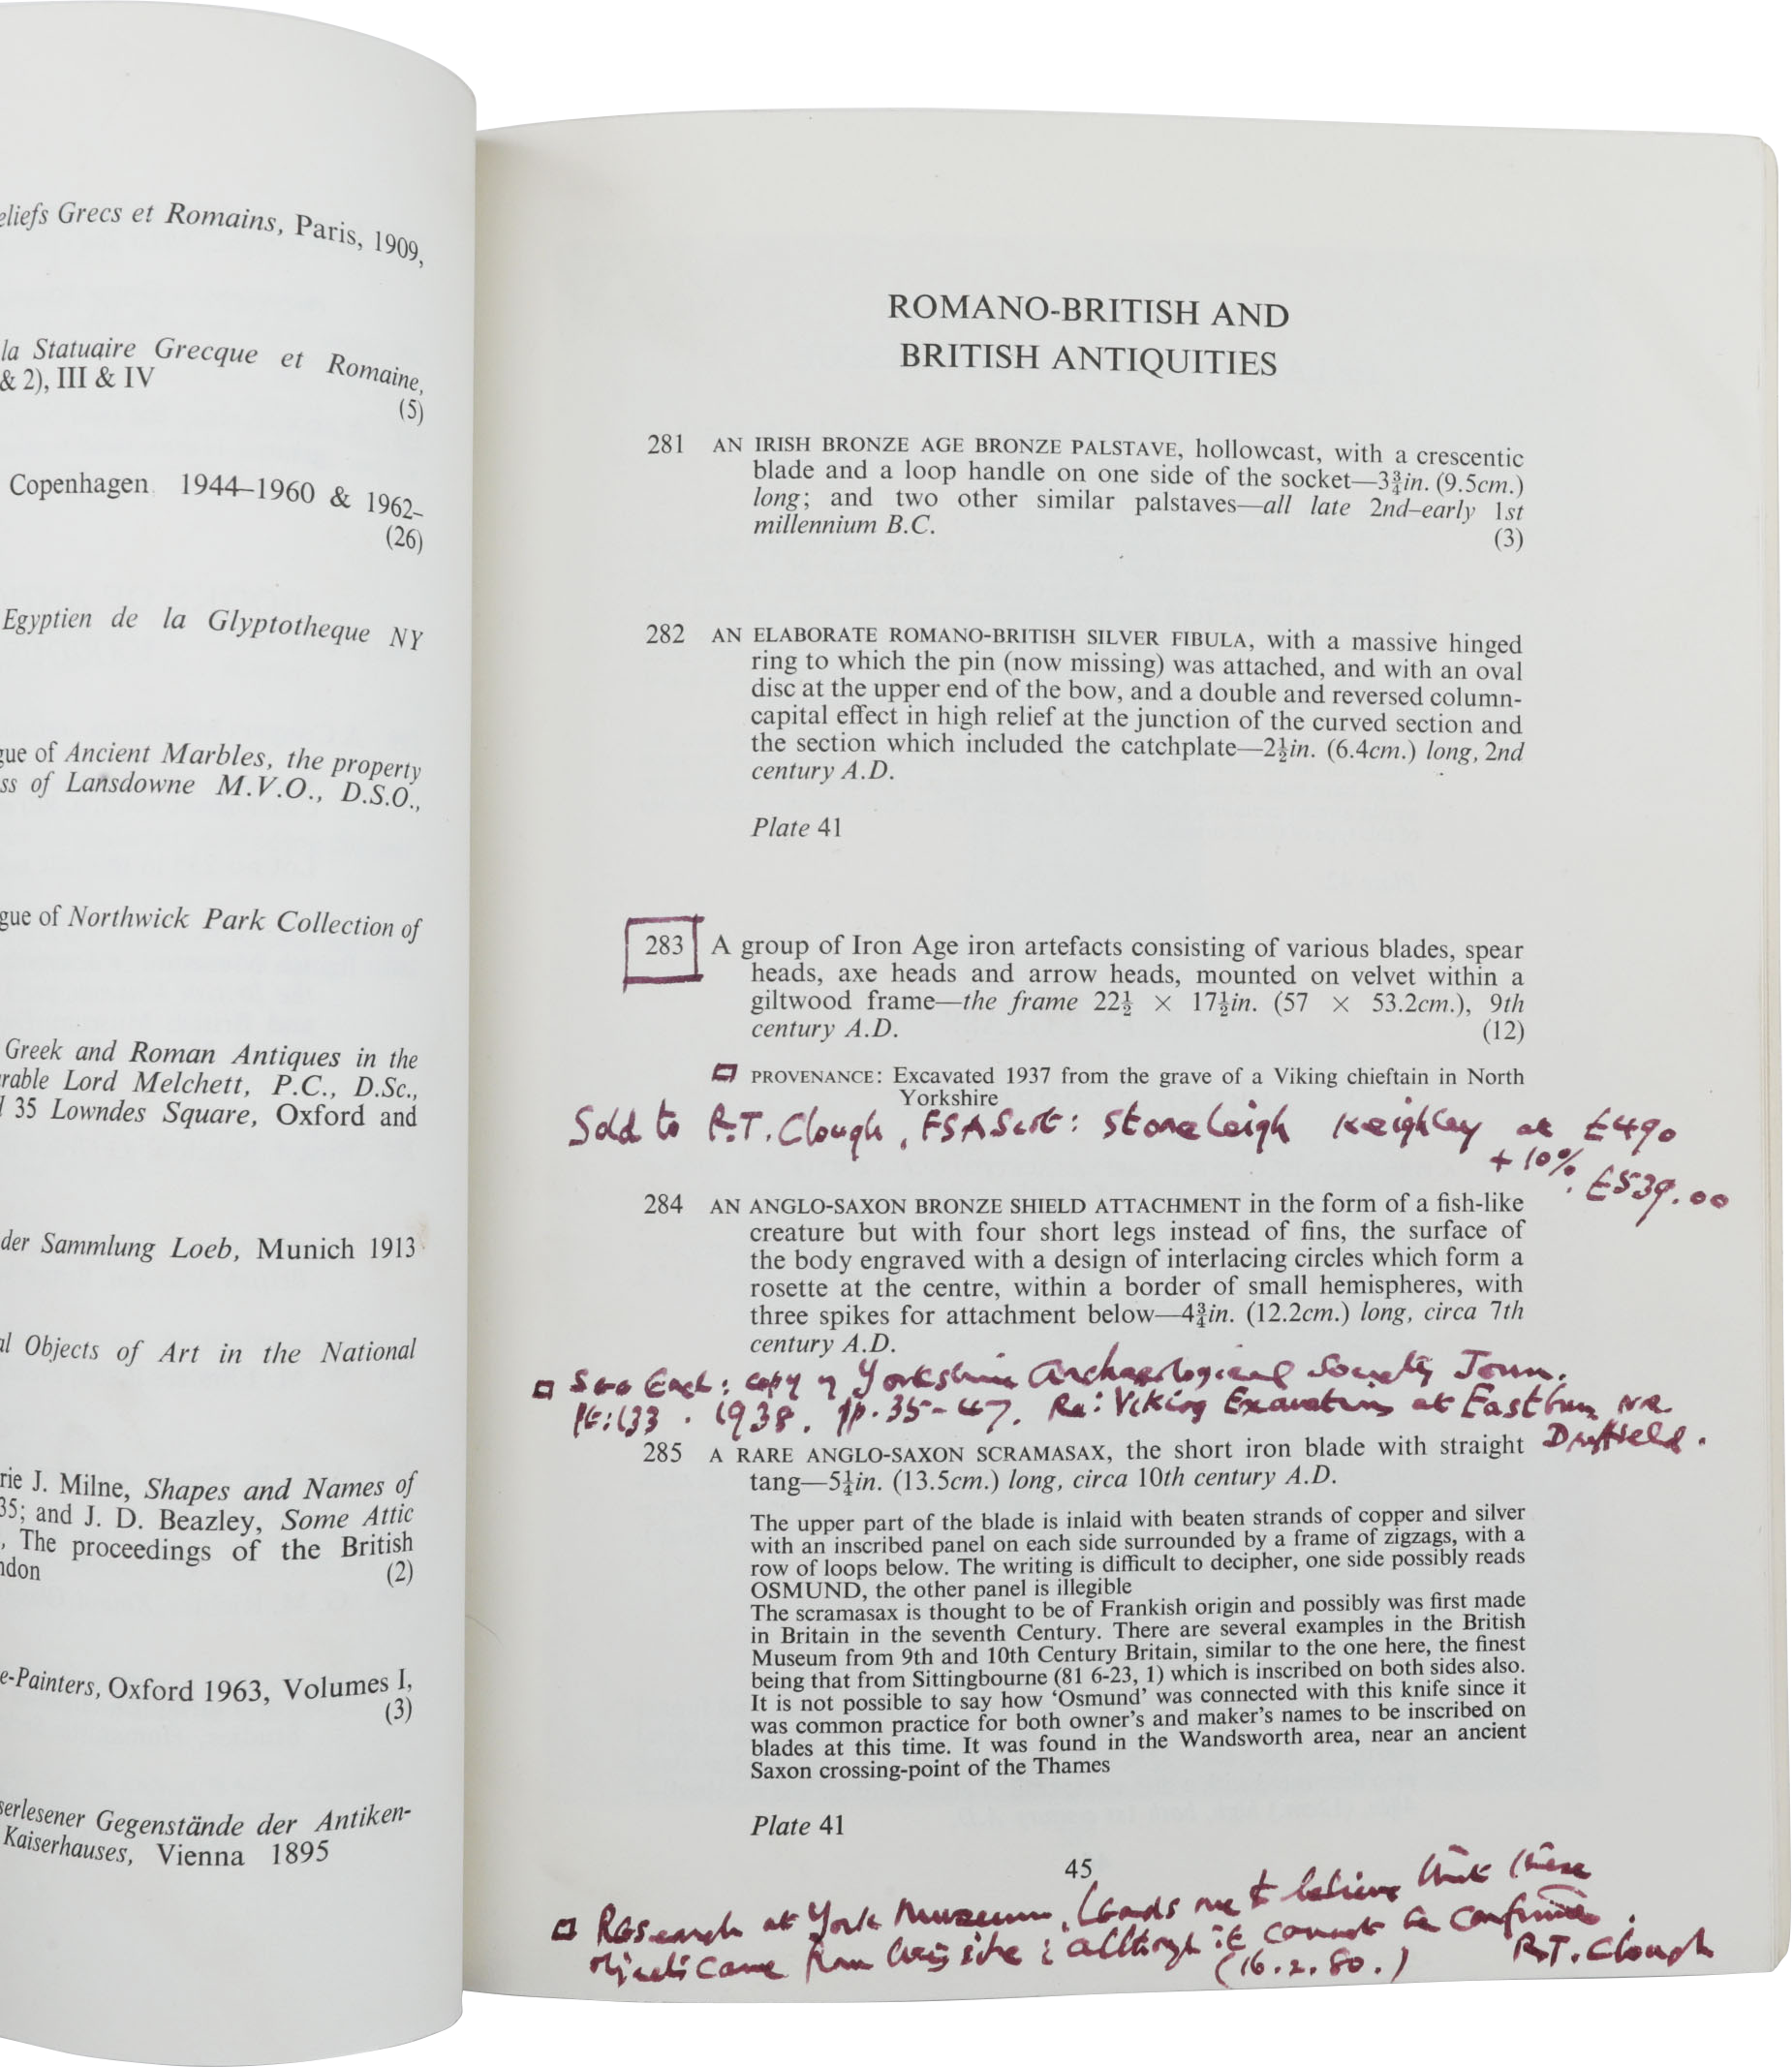 eliefs Grecs et Romains, Paris, 1909,
la Statuaire Grecque et Romaine,
& 2), III & IV
(5)
Copenhagen 1944–1960 & 1962–
(26)
Egyptien de la Glyptotheque NY
gue of Ancient Marbles, the property
ss of Lansdowne M.V.O., D.S.O.,
gue of Northwick Park Collection of
Greek and Roman Antiques in the
rable Lord Melchett, P.C., D.Sc.,
35 Lowndes Square, Oxford and
der Sammlung Loeb, Munich 1913
al Objects of Art in the National
rie J. Milne, Shapes and Names of
35; and J. D. Beazley, Some Attic
, The proceedings of the British
ndon (2)
e-Painters, Oxford 1963, Volumes I,
(3)
serlesener Gegenstände der Antiken-
Kaiserhauses, Vienna 1895
ROMANO-BRITISH AND
BRITISH ANTIQUITIES
281 AN IRISH BRONZE AGE BRONZE PALSTAVE, hollowcast, with a crescentic
blade and a loop handle on one side of the socket—3¾in. (9.5cm.)
long; and two other similar palstaves—all late 2nd–early 1st
millennium B.C. (3)
282 AN ELABORATE ROMANO-BRITISH SILVER FIBULA, with a massive hinged
ring to which the pin (now missing) was attached, and with an oval
disc at the upper end of the bow, and a double and reversed column-
capital effect in high relief at the junction of the curved section and
the section which included the catchplate—2½in. (6.4cm.) long, 2nd
century A.D.
Plate 41
283 A group of Iron Age iron artefacts consisting of various blades, spear
heads, axe heads and arrow heads, mounted on velvet within a
giltwood frame—the frame 22½ × 17½in. (57 × 53.2cm.), 9th
century A.D. (12)
PROVENANCE: Excavated 1937 from the grave of a Viking chieftain in North
Yorkshire
Sold to R.T. Clough, FSA Scot: Stoneleigh Keighley at £490
+ 10% £539.00
284 AN ANGLO-SAXON BRONZE SHIELD ATTACHMENT in the form of a fish-like
creature but with four short legs instead of fins, the surface of
the body engraved with a design of interlacing circles which form a
rosette at the centre, within a border of small hemispheres, with
three spikes for attachment below—4¾in. (12.2cm.) long, circa 7th
century A.D.
See Encl: copy of Yorkshire Archaeological Society Journ.
Pt: 133. 1938. pp. 35-47. Re: Viking Excavations at Eastburn NR
Driffield.
285 A RARE ANGLO-SAXON SCRAMASAX, the short iron blade with straight
tang—5¼in. (13.5cm.) long, circa 10th century A.D.
The upper part of the blade is inlaid with beaten strands of copper and silver
with an inscribed panel on each side surrounded by a frame of zigzags, with a
row of loops below. The writing is difficult to decipher, one side possibly reads
OSMUND, the other panel is illegible
The scramasax is thought to be of Frankish origin and possibly was first made
in Britain in the seventh Century. There are several examples in the British
Museum from 9th and 10th Century Britain, similar to the one here, the finest
being that from Sittingbourne (81 6-23, 1) which is inscribed on both sides also.
It is not possible to say how ‘Osmund’ was connected with this knife since it
was common practice for both owner’s and maker’s names to be inscribed on
blades at this time. It was found in the Wandsworth area, near an ancient
Saxon crossing-point of the Thames
Plate 41
45
Research at York Museum, leads me to believe that these
objects came from this site; although it cannot be confirmed.
(16.2.80.) R.T. Clough